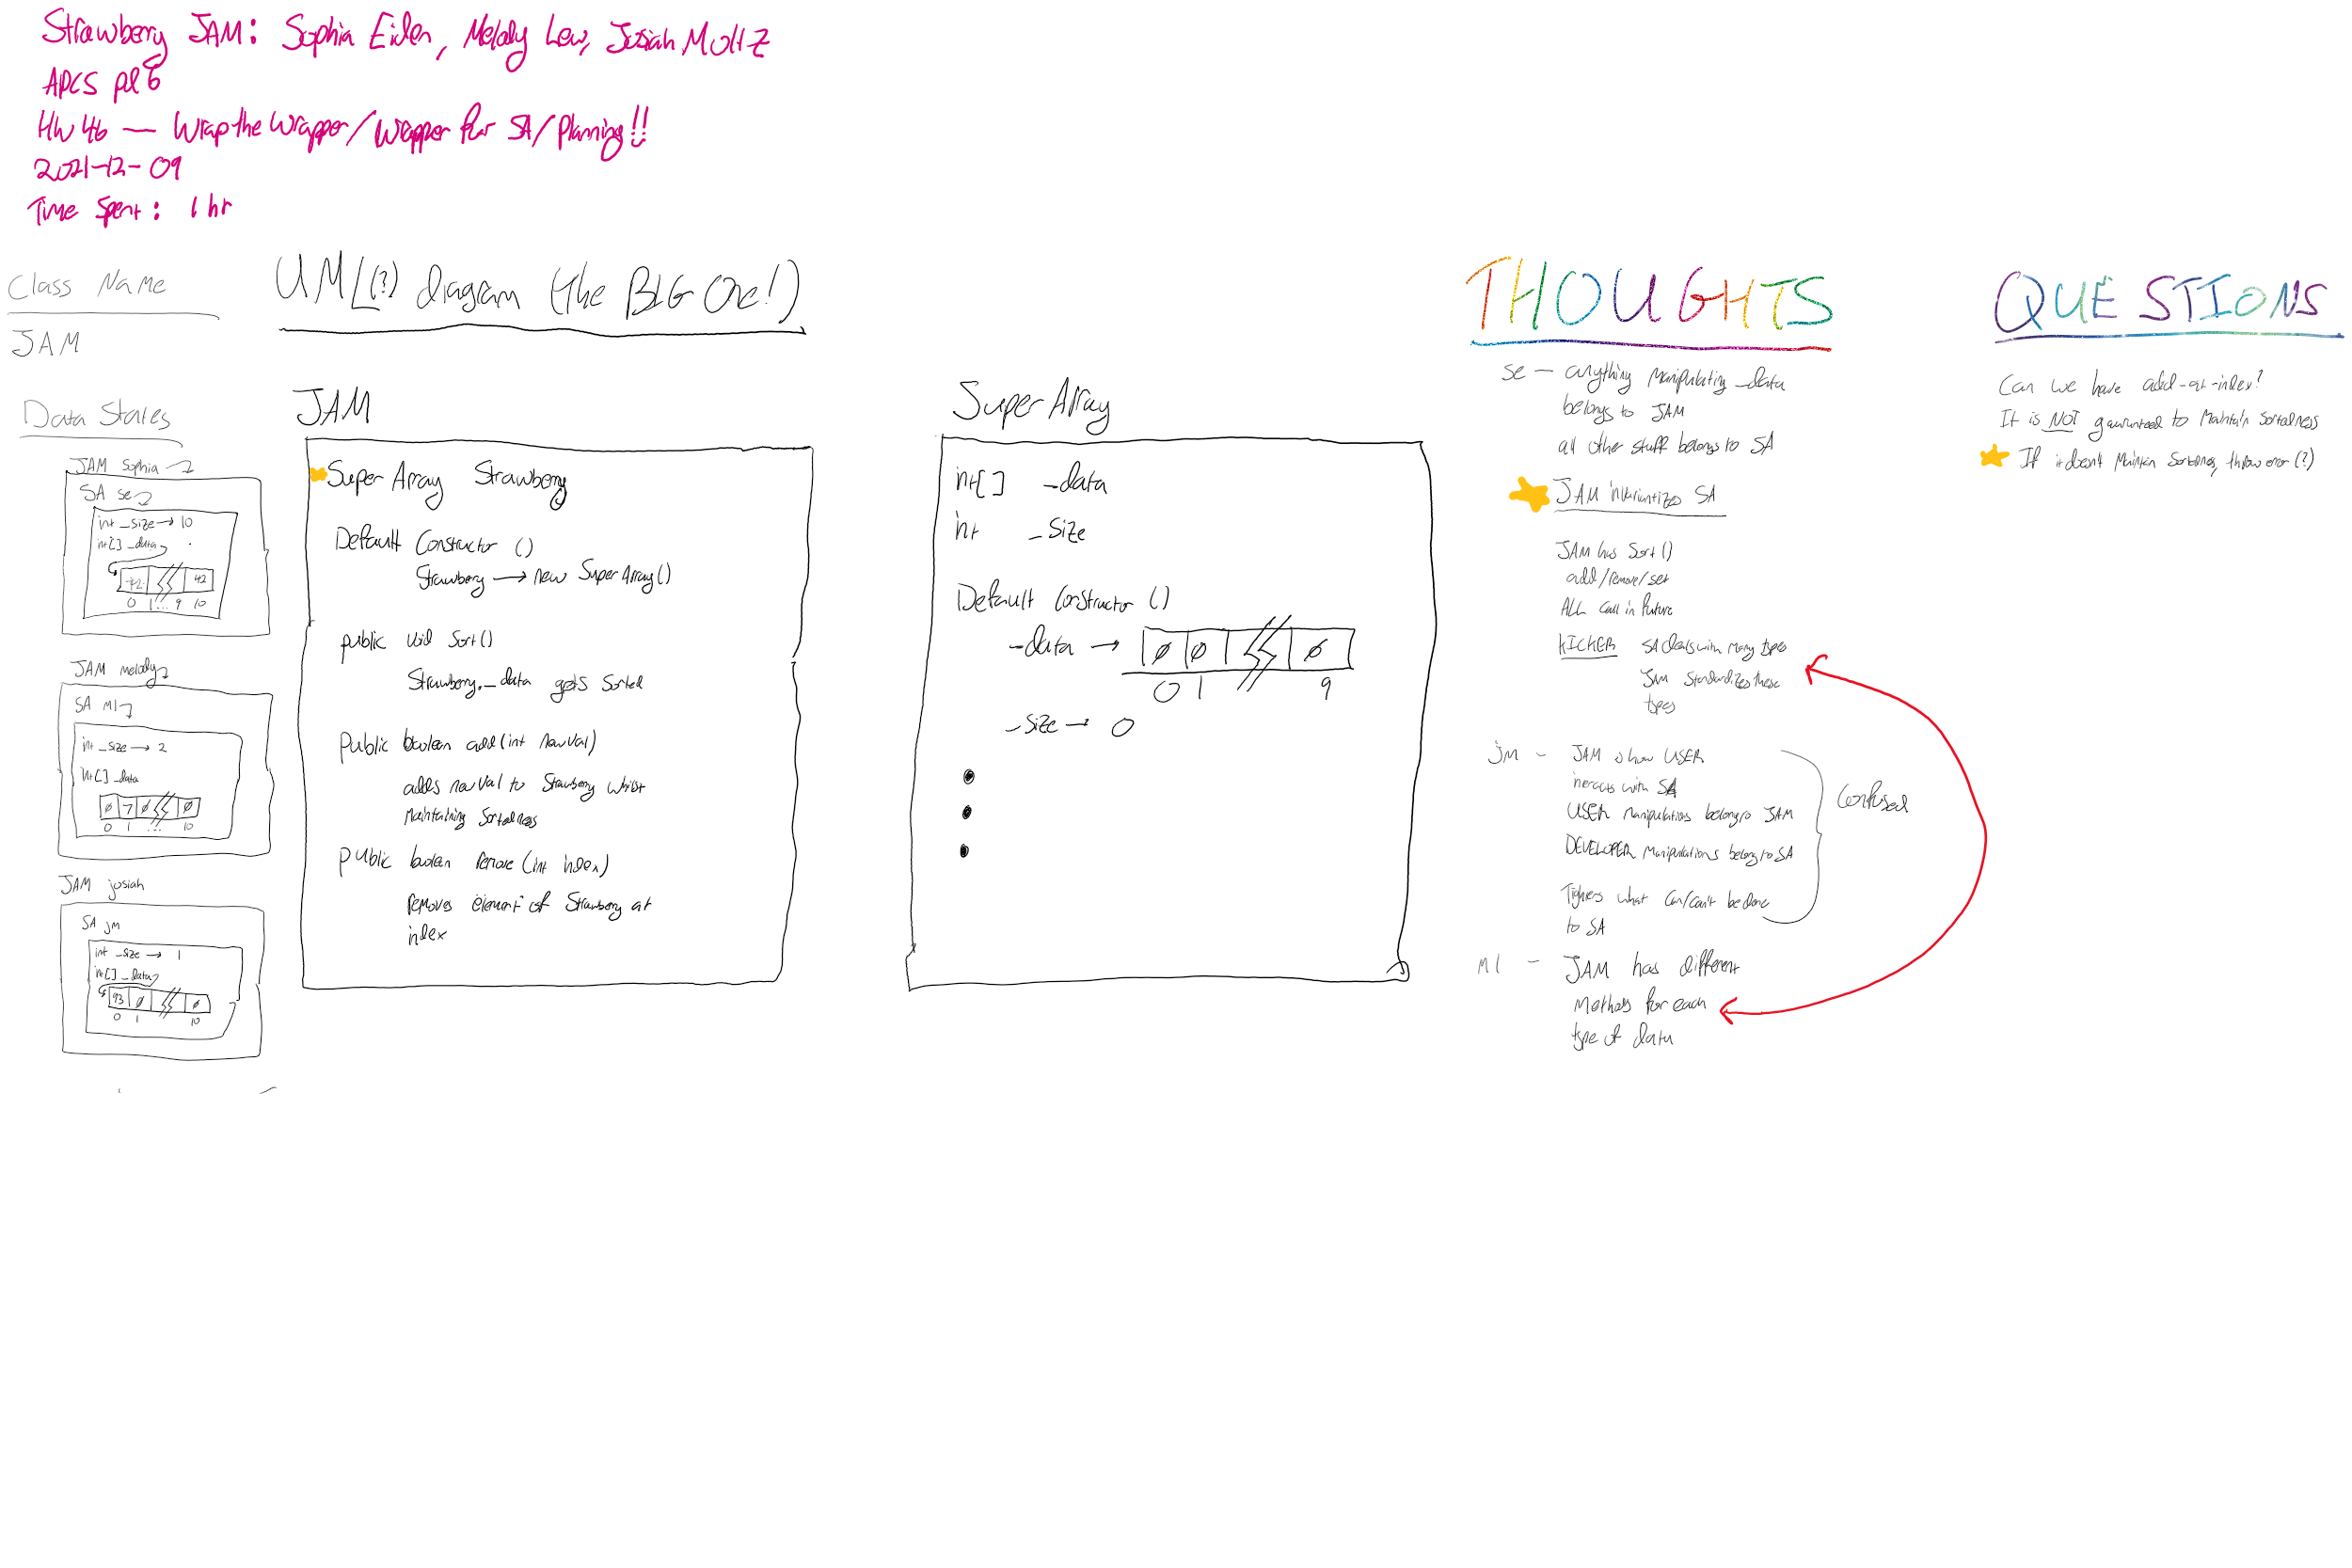 Strawberry JAM: Sophia Eiden, Melody Lew, Josiah Moltz
APCS pd 6
HW 46 — Wrap the Wrapper/Wrapper for SA/Planning!!
2021-12-09
Time Spent: 1 hr
Class Name
JAM
Data States
JAM Sophia
SA se
int _size → 10
int[] _data
42
0 1 ... 9 10
JAM melody
SA ml
int _size → 2
int[] _data
0 7 0 0
0 1 ... 10
JAM josiah
SA jm
int _size → 1
int[] _data
93 0 0
0 1 10
UML(?) diagram (the BIG One!)
JAM
Super Array Strawberry
Default Constructor ()
Strawberry → new SuperArray()
public void Sort()
Strawberry._data gets Sorted
Public boolean add(int newVal)
adds newVal to Strawberry whilst
Maintaining Sortedness
public boolean remove (int index)
removes element of Strawberry at
index
Super Array
int[] _data
int _size
Default Constructor ()
_data → 0 0 0
0 1 9
_size → 0
THOUGHTS
se — anything manipulating _data
belongs to JAM
all other stuff belongs to SA
JAM invariantizes SA
JAM has Sort()
add/remove/set
ALL call in future
KICKER SA deals with many types
JAM Standardizes these
types
jm – JAM is how USER
interacts with SA
USER manipulations belong to JAM
DEVELOPER manipulations belong to SA
Tighters what can/can't be done
to SA
Confused
ml – JAM has different
Methods for each
type of data
QUESTIONS
Can we have add-at-index?
It is NOT guarunteed to Maintain Sortedness
If it doesn't Maintain Sortedness, throw error(?)